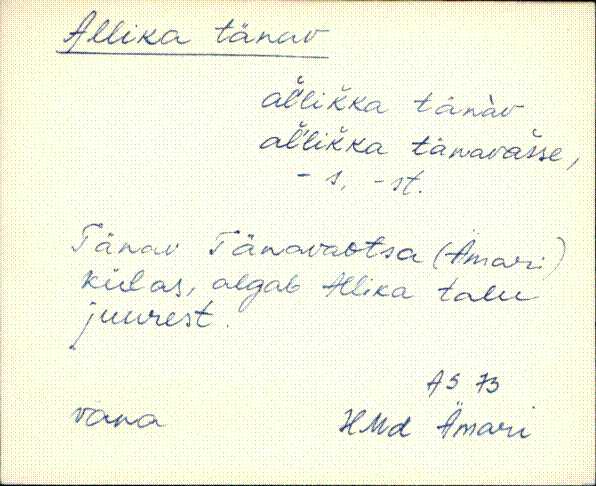 Allika tänav
al̆likka tänàv
al̆likka tänavasse,
- s, - st.
Tänav Tänavaotsa (Ämari)
külas, algab Allika talu
juurest.
AS 73
vana HMd Ämari